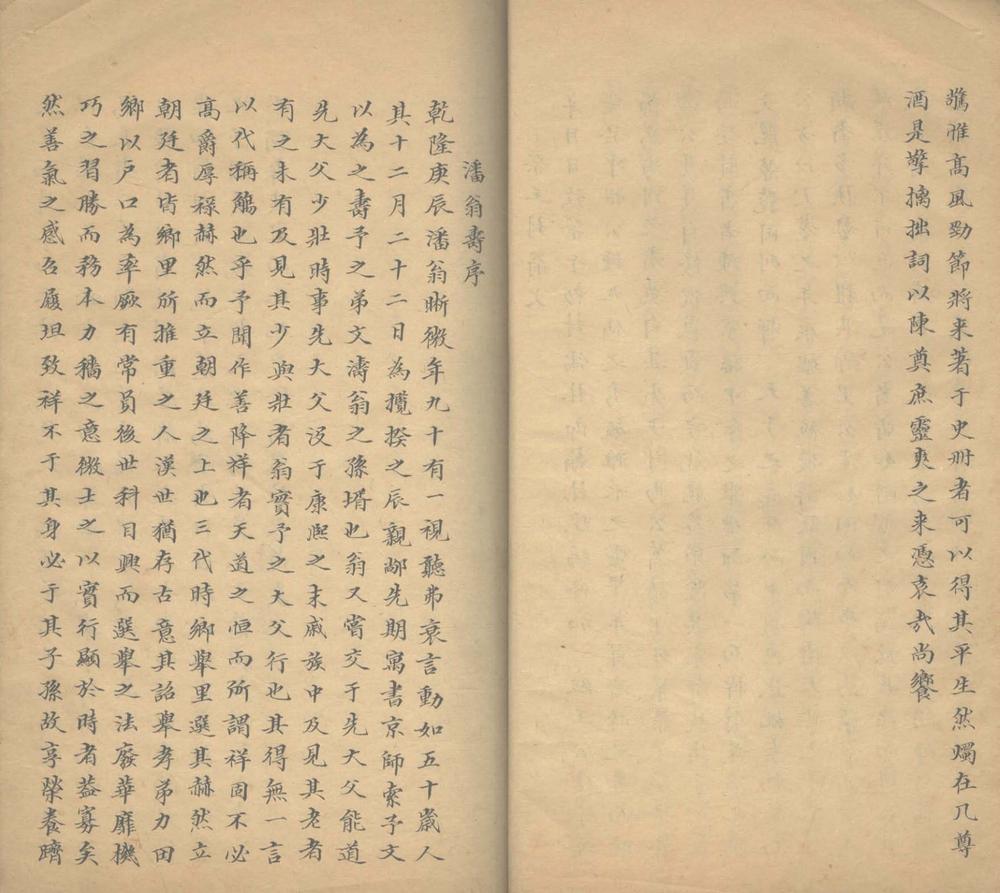 驚雅高風勁節將来著于史冊者可以得其平生然燭在几尊
酒是擎摛拙詞以陳奠庶靈爽之来憑哀㦲尚饗
潘翁壽序
乾隆庚辰潘翁晰微年九十有一視聽弗衰言動如五十歲人
其十二月二十二日為攬揆之辰親鄰先期寓書京師索予文
以為之壽予之弟文濤翁之孫壻也翁又嘗交于先大父能道
先大父少壯時事先大父沒于康熙之末戚族中及見其老者
有之未有及見其少與壯者翁實予之大父行也其得無一言
以代稱觴也乎予聞作善降祥者天道之恒而所謂祥固不必
高爵厚祿赫然而立朝廷之上也三代時鄉舉里選其赫然立
朝廷者皆鄉里所推重之人漢世猶存古意其詔舉孝弟力田
鄉以戶口為率厥有常員後世科目興而選舉之法廢華靡機
巧之習勝而務本力穡之意微士之以實行顯於時者葢寡矣
然善氣之感召履坦致祥不于其身必于其子孫故享榮養躋